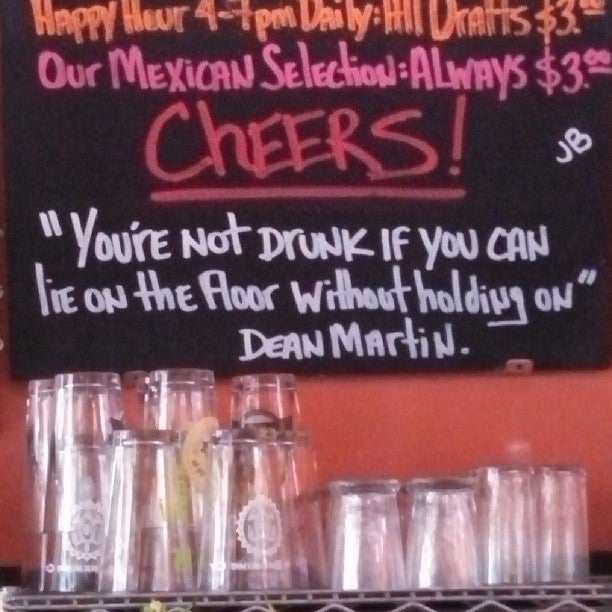 Happy Hour 4-7pm Daily: All Drafts $3.00
Our Mexican Selection: Always $3.00
CHEERS!
JB
"You're not drunk if you can
lie on the floor without holding on"
Dean Martin.